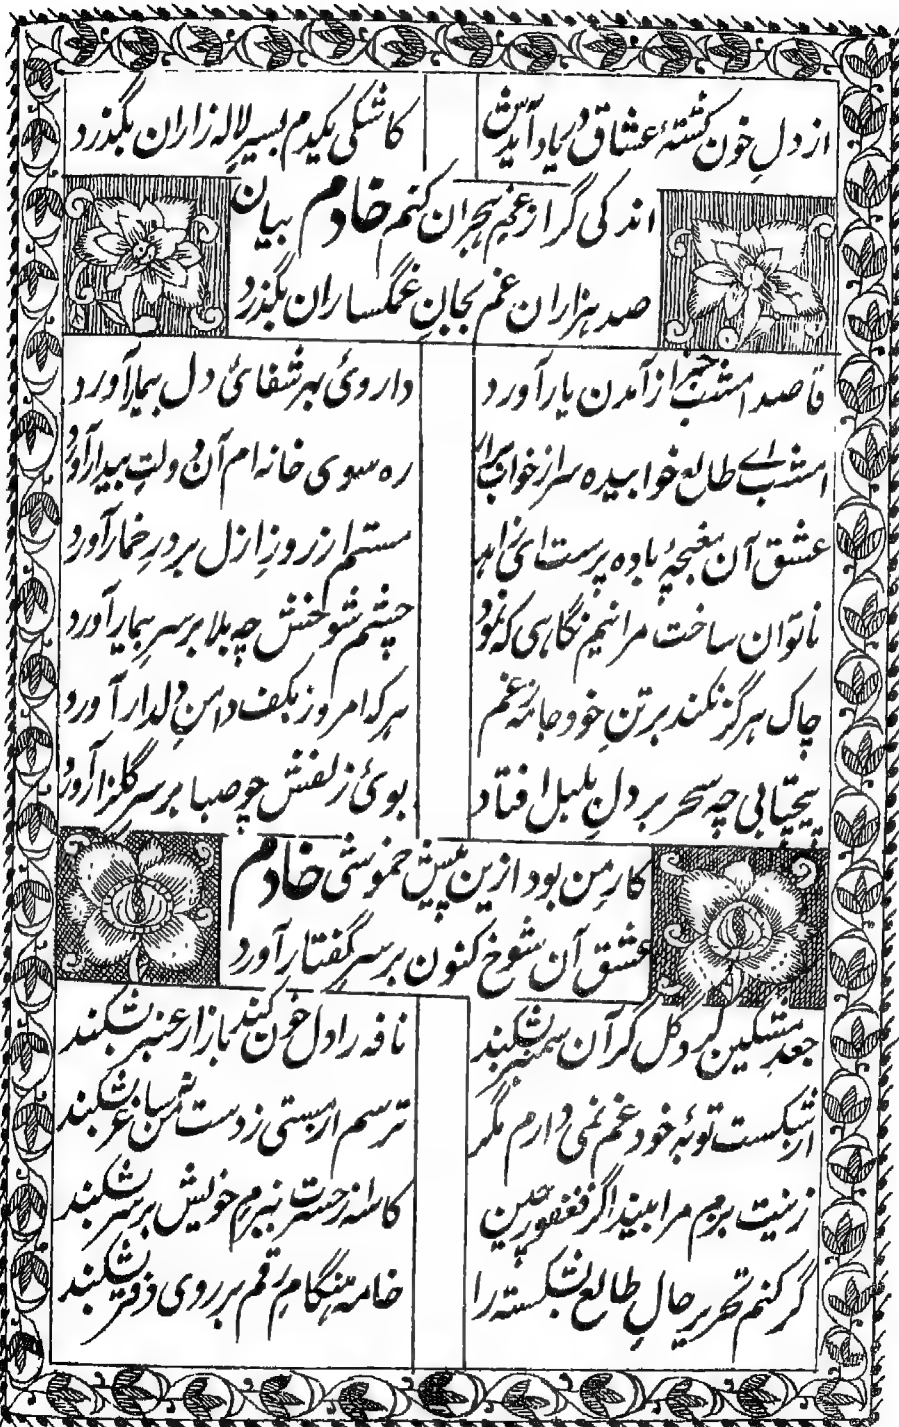 از دلِ خون گشتهٔ عشاق در یاد آیدش کاشکی یکدم بسیرِ لاله زاران بگذرد
اندکی گر از غمِ ہجران کنم خادم بیان
صد ہزاران غم بجانِ غمگساران بگذرد
قاصد امشب خبر از آمدن یار آورد داروئ بہر شفائ دل بیمار آورد
امشب اے طالع خوابیدہ سر از خواب برآر رہ سوی خانہ ام آن دولتِ بیدار آورد
عشق آن مغبچۂ بادہ پرست ای زاہد مستم از روزِ ازل بر درِ خمار آورد
ناتوان ساخت مرا نیم نگاہی کہ نمود چشم شوخش چہ بلا بر سرِ بیمار آورد
چاک ہرگز نکند بر تنِ خود جامہ ز غم ہر کہ امروز بکف دامنِ دلدار آورد
پیچتابی چہ سحر بر دلِ بلبل افتاد بوئ زلفش چو صبا بر سرِ گلزار آورد
کارِ من بود ازین پیش خموشی خادم
عشق آن شوخ کنون بر سرِ گفتار آورد
جعدِ مشکین گردِ گل گر آن سمنبر بشکند نافہ را دل خون کند بازار عنبر بشکند
از شکست توبۂ خود غم نمی دارم مگر ترسم از مستی ز دست من ساغر بشکند
زینت بزم مرا بیند اگر فغفور چین کاسہ از حسرت بہ بزمِ خویش بر سر بشکند
گر کنم تحریر حالِ طالعِ بشکستہ را خامہ ہنگامِ رقم بر روی دفتر بشکند